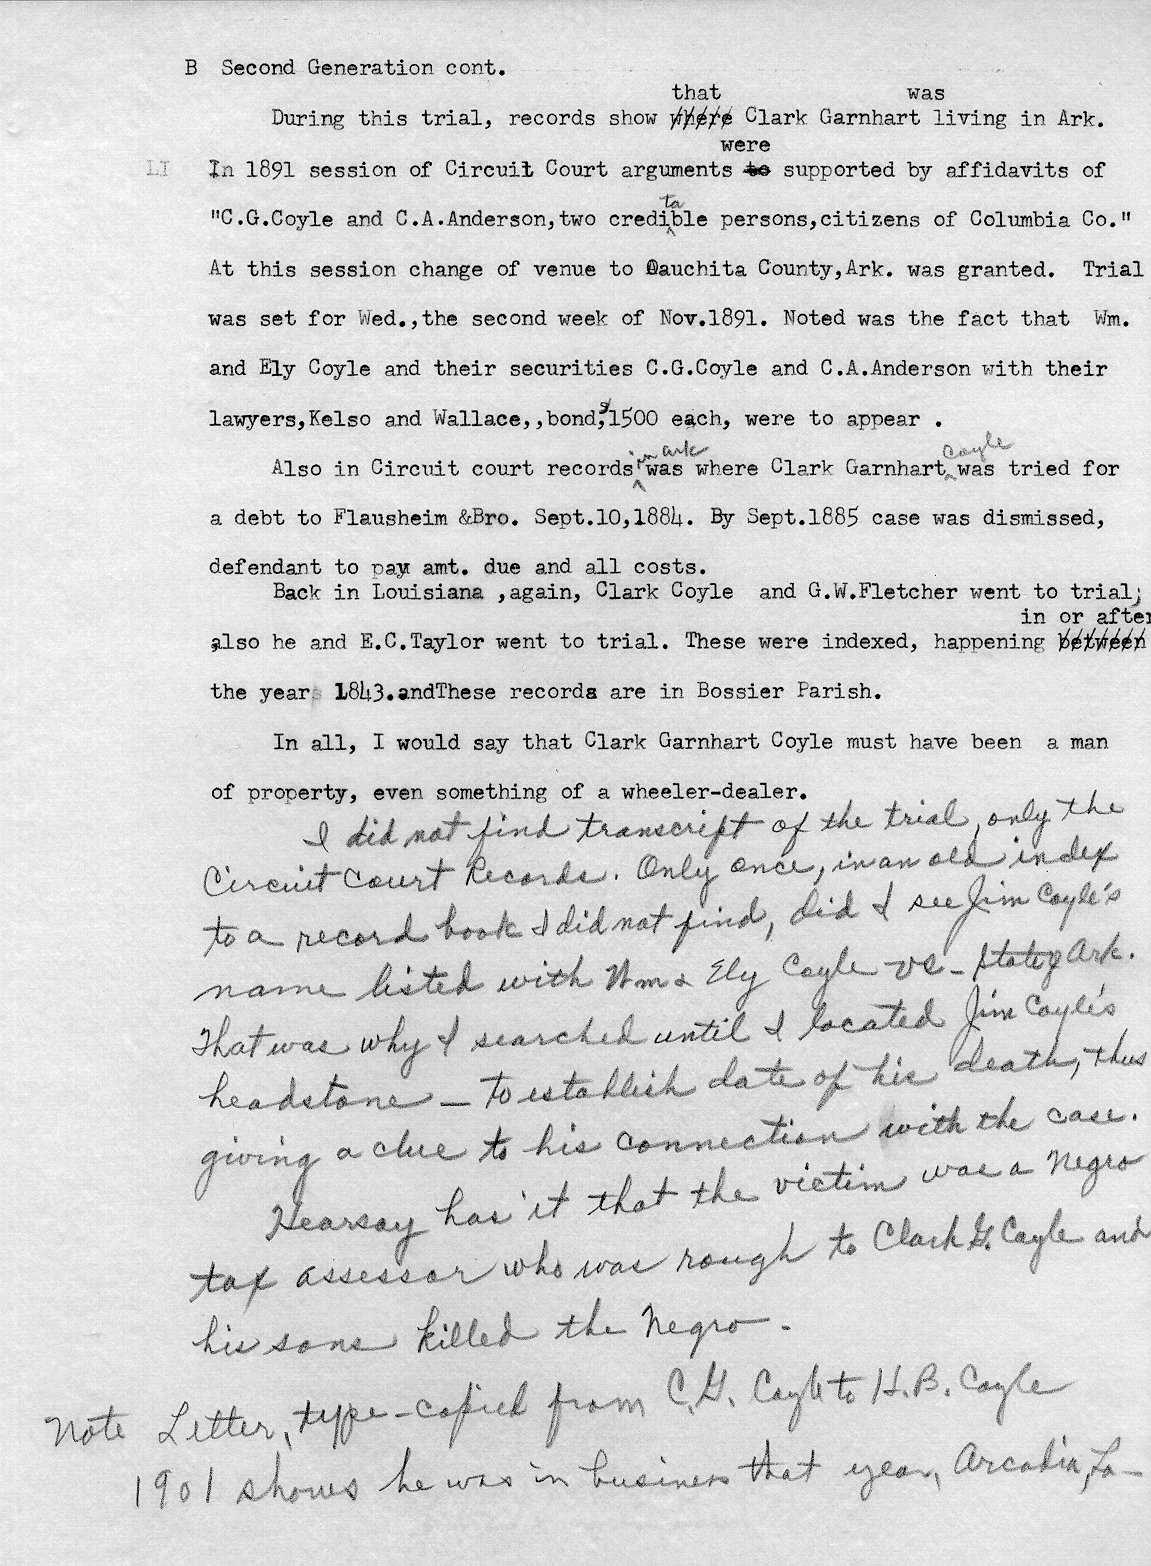 B Second Generation cont.
that was
During this trial, records show where Clark Garnhart living in Ark.
were
LI In 1891 session of Circuit Court arguments to supported by affidavits of
ta
"C.G.Coyle and C.A.Anderson,two credible persons,citizens of Columbia Co."
At this session change of venue to Oauchita County,Ark. was granted. Trial
was set for Wed.,the second week of Nov.1891. Noted was the fact that Wm.
and Ely Coyle and their securities C.G.Coyle and C.A.Anderson with their
lawyers,Kelso and Wallace,,bond,$1500 each, were to appear .
in Ark Coyle
Also in Circuit court records was where Clark Garnhart was tried for
a debt to Flausheim &Bro. Sept.10,1884. By Sept.1885 case was dismissed,
defendant to pay amt. due and all costs.
Back in Louisiana ,again, Clark Coyle and G.W.Fletcher went to trial;
in or after
also he and E.C.Taylor went to trial. These were indexed, happening between
the years 1843.andThese records are in Bossier Parish.
In all, I would say that Clark Garnhart Coyle must have been a man
of property, even something of a wheeler-dealer.
I did not find transcript of the trial, only the
Circuit Court Records. Only once, in an old index
to a record book I did not find, did I see Jim Coyle's
name listed with Wm & Ely Coyle vs - State of Ark.
That was why I searched until I located Jim Coyle's
headstone — to establish date of his death, thus
giving a clue to his connection with the case.
Hearsay has it that the victim was a Negro
tax assessor who was rough to Clark G. Coyle and
his sons killed the Negro -
Note Letter, type-copied from C.G. Coyle to H.B. Coyle
1901 shows he was in business that year, Arcadia, La -